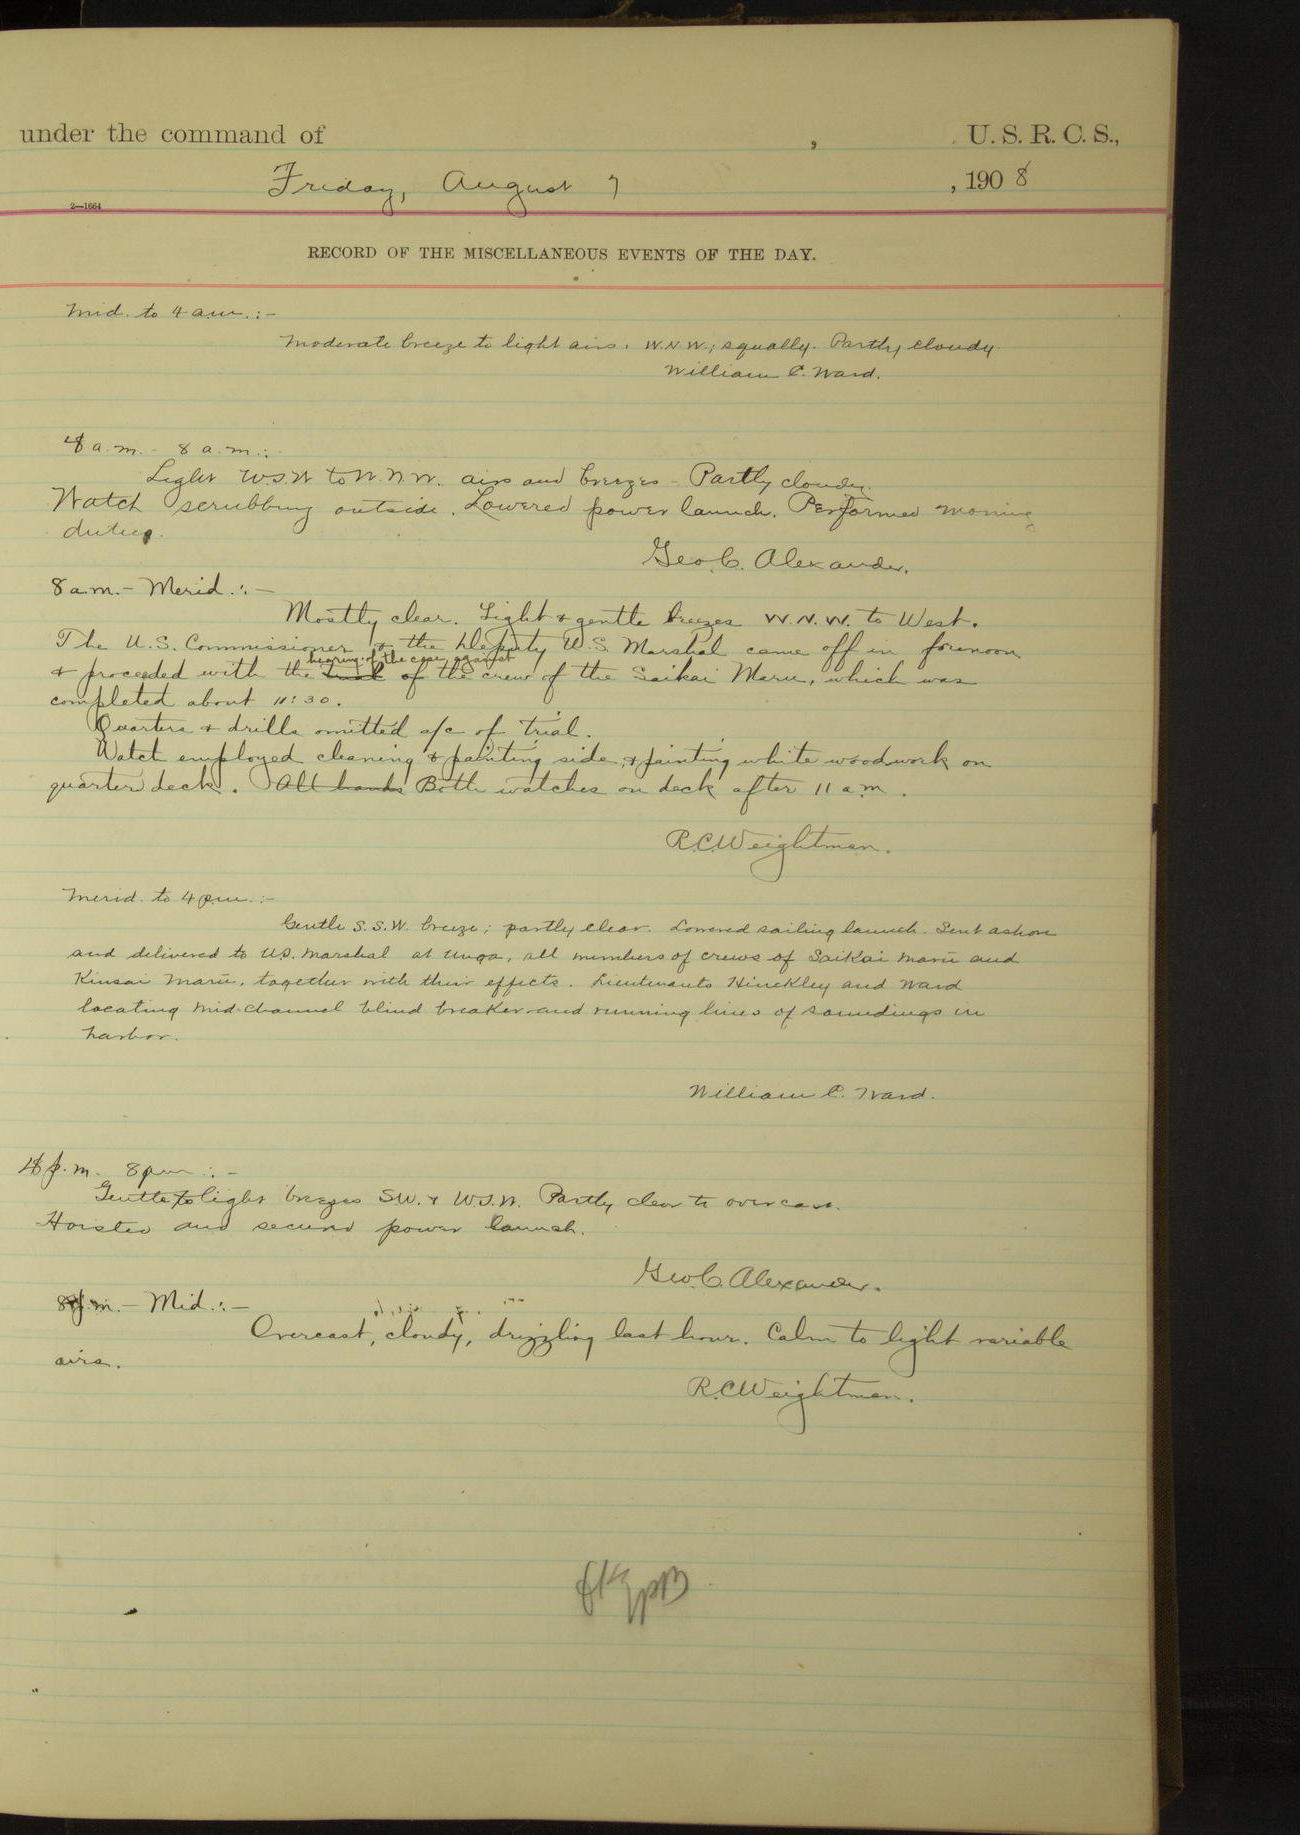 under the command of , U. S. R. C. S.,
Friday, August 7 , 1908
2—1664
RECORD OF THE MISCELLANEOUS EVENTS OF THE DAY.
Mid. to 4 a.m.:-
Moderate breeze to light airs. W.N.W.; squally. Partly cloudy.
William C. Ward.
4 a.m. - 8 a.m.:
Light W.S.W to N.N.W. airs and breezes - Partly cloudy.
Watch scrubbing outside. Lowered power launch. Performed morning
duties.
Geo. C. Alexander.
8 a.m. - Merid.:-
Mostly clear. Light & gentle breezes W.N.W. to West.
The U.S. Commissioner & the Deputy U.S. Marshal came off in forenoon
hearing of the case against
& proceeded with the trial of the crew of the Saikai Maru, which was
completed about 11:30.
Quarters & drills omitted a/c of trial.
Watch employed cleaning & painting side, & painting white woodwork on
quarter deck. All hands Both watches on deck after 11 a.m.
R.C. Weightman.
Merid. to 4 p.m.:-
Gentle S.S.W. breeze; partly clear. Lowered sailing launch. Sent ashore
and delivered to U.S. Marshal at Unga, all members of crews of Saikai Maru and
Kinsai Maru, together with their effects. Lieutenants Hinckley and Ward
locating mid-channel blind breaker and running lines of soundings in
harbor.
William C. Ward.
4 p.m. 8 p.m.:-
Gentle to light breezes SW. & W.S.W. Partly clear to overcast.
Hoisted and secured power launch.
Geo. C. Alexander.
8 p.m. - Mid.:-
Overcast, cloudy, drizzling last hour. Calm to light variable
airs.
R.C. Weightman.